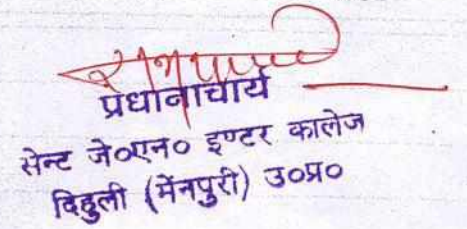 प्रधानाचार्य
सेन्ट जे०एन० इण्टर कालेज
दिहुली (मेंनपुरी) उ०प्र०